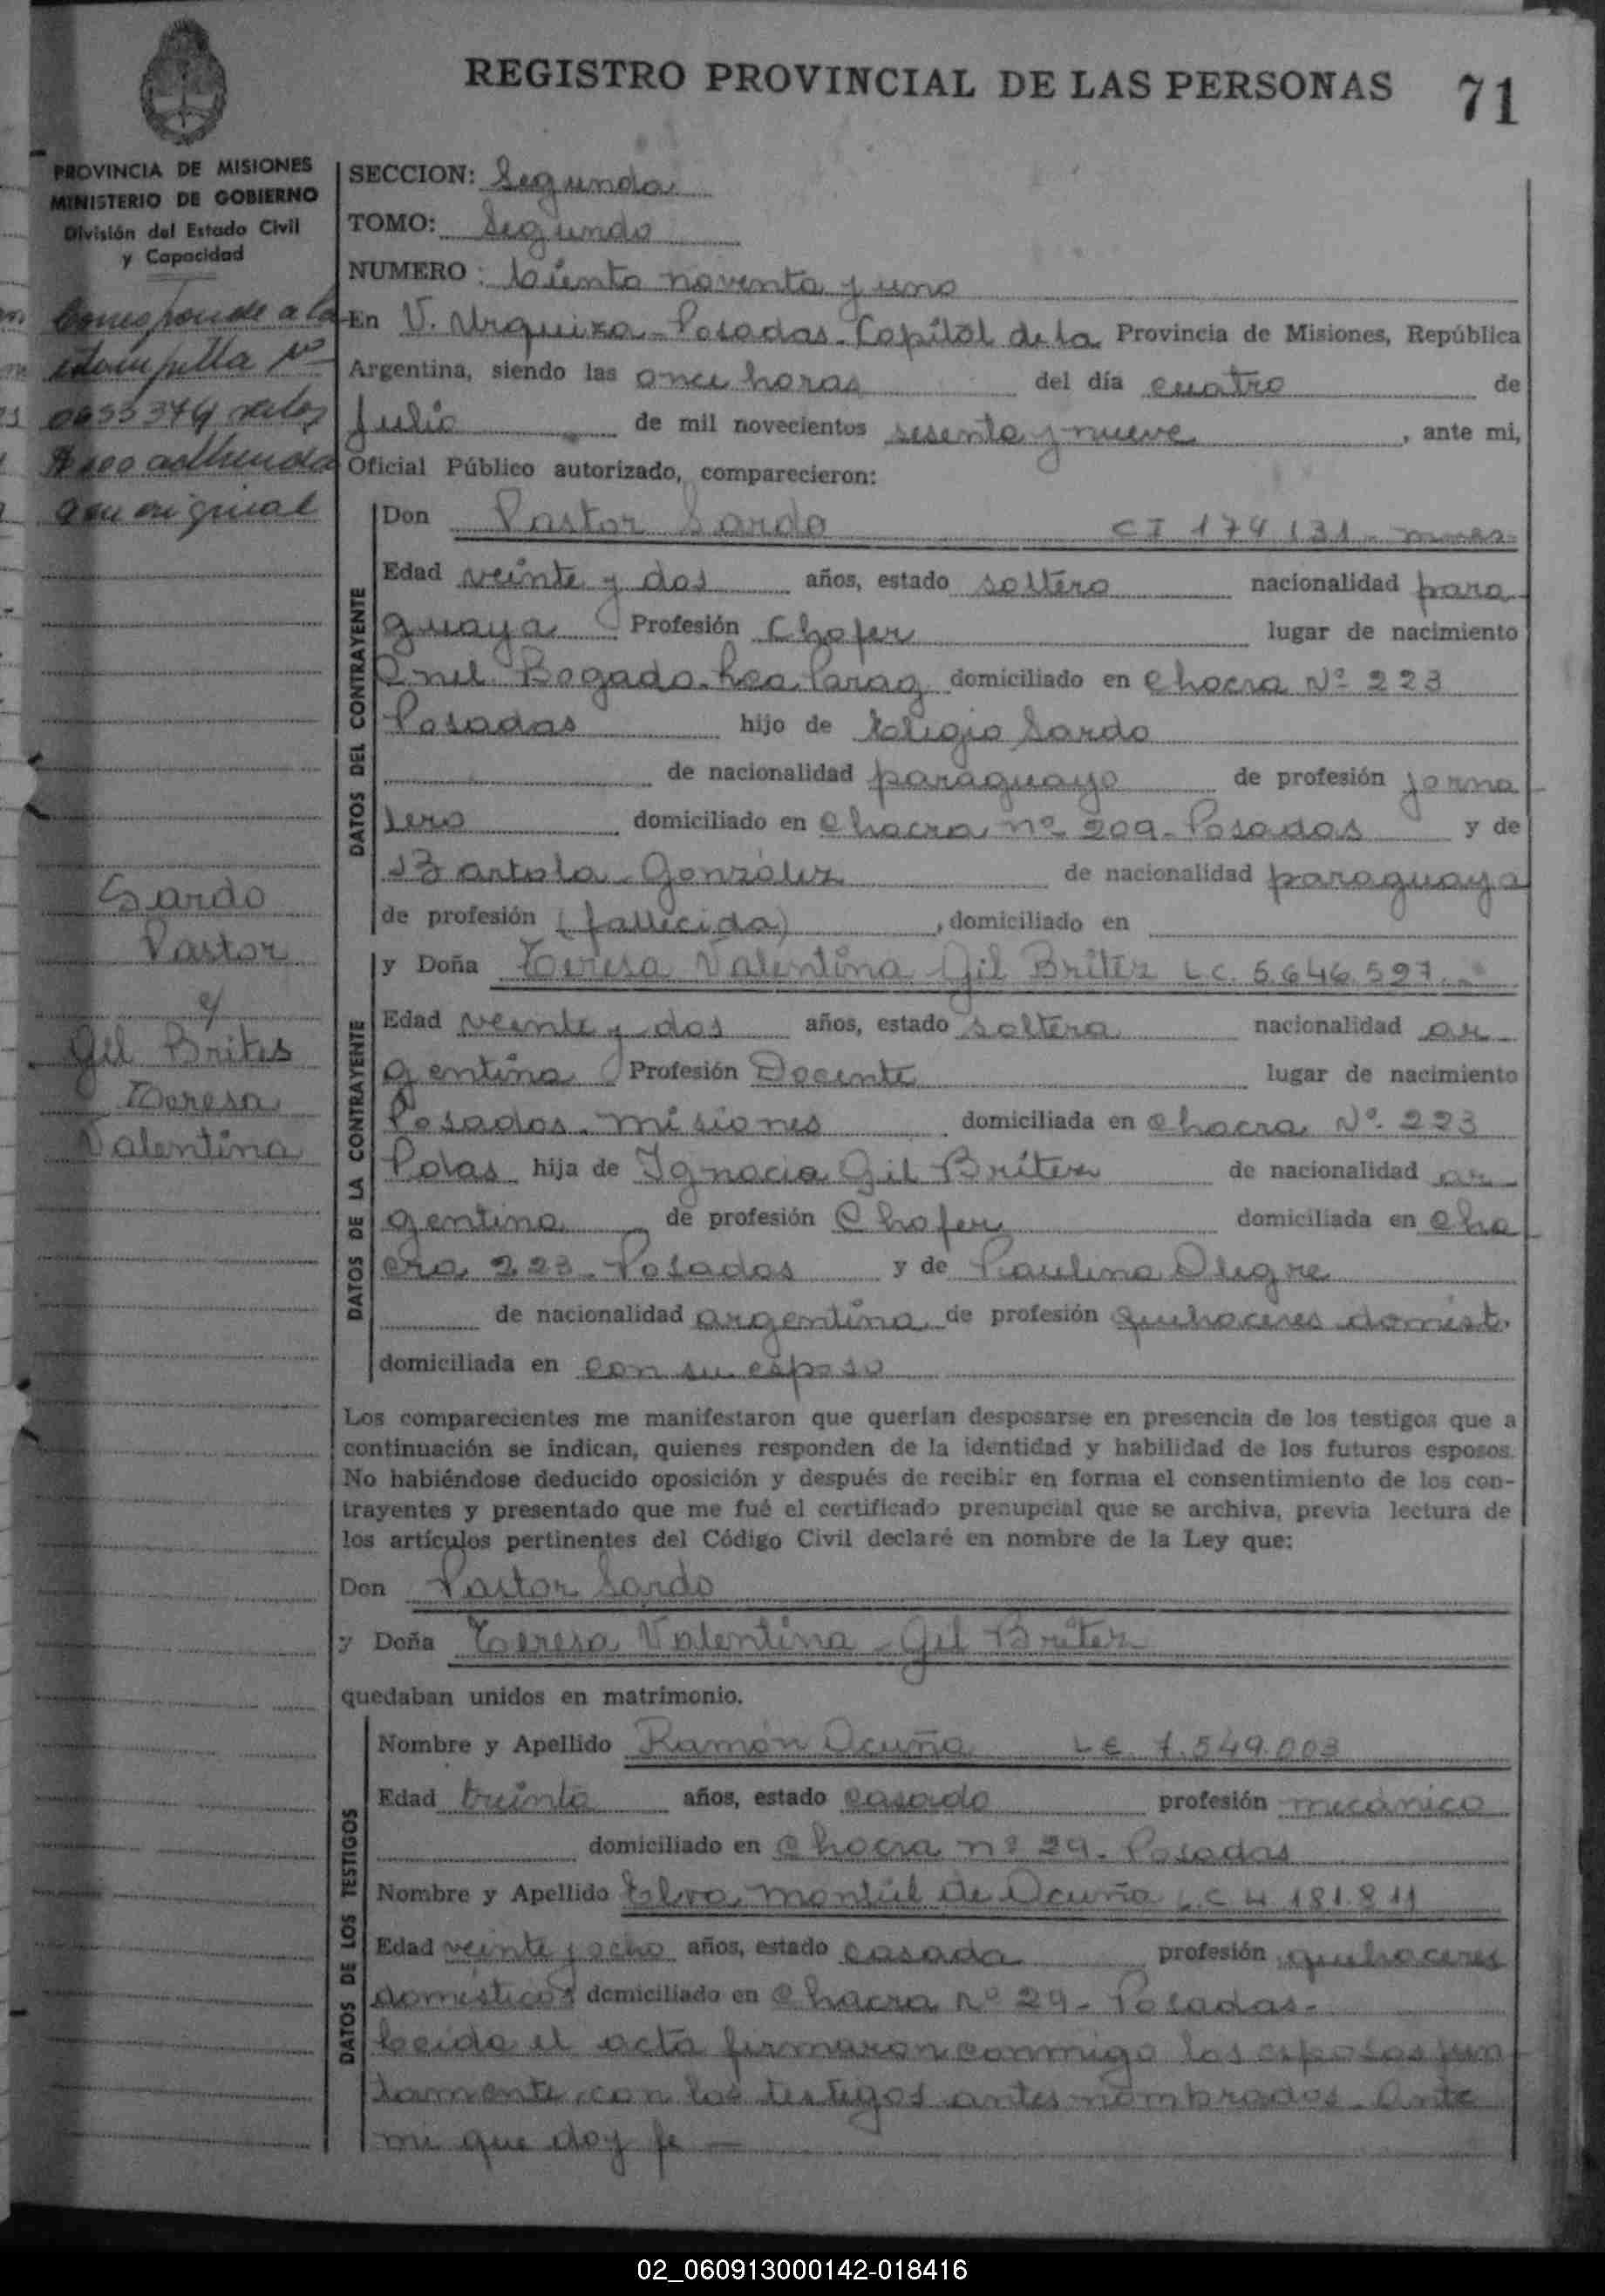 REGISTRO PROVINCIAL DE LAS PERSONAS 71
PROVINCIA DE MISIONES
MINISTERIO DE GOBIERNO
División del Estado Civil
y Capacidad
Corresponde a la
estampilla Nº
0633374 valor
$ 100 adherida
a su original
Sardo
Pastor
y
Gil Brites
Teresa
Valentina
SECCION: Segunda
TOMO: Segundo
NUMERO: Ciento noventa y uno
En V. Urquiza - Posadas - Capital de la Provincia de Misiones, República
Argentina, siendo las once horas del día cuatro de
Julio de mil novecientos sesenta y nueve, ante mi,
Oficial Público autorizado, comparecieron:
DATOS DEL CONTRAYENTE
Don Pastor Sardo CI 174.131
Edad veinte y dos años, estado soltero nacionalidad para
guaya Profesión Chofer lugar de nacimiento
Cnel. Bogado. Rca. Parag domiciliado en Chacra Nº 223
Posadas hijo de Eligio Sardo
de nacionalidad paraguayo de profesión jorna
lero domiciliado en Chacra nº 209 - Posadas y de
Bartola González de nacionalidad paraguaya
de profesión (fallecida), domiciliado en
DATOS DE LA CONTRAYENTE
y Doña Teresa Valentina Gil Britez L.C. 5.646.597
Edad veinte y dos años, estado soltera nacionalidad ar
gentina Profesión Docente lugar de nacimiento
Posadas - Misiones domiciliada en Chacra Nº 223
Pdas hija de Ignacia Gil Britez de nacionalidad ar
gentina de profesión Chofer domiciliada en Cha
cra 223 - Posadas y de Paulina Alegre
de nacionalidad argentina de profesión quehaceres domést.
domiciliada en con su esposo
Los comparecientes me manifestaron que querían desposarse en presencia de los testigos que a
continuación se indican, quienes responden de la identidad y habilidad de los futuros esposos.
No habiéndose deducido oposición y después de recibir en forma el consentimiento de los con-
trayentes y presentado que me fué el certificado prenupcial que se archiva, previa lectura de
los artículos pertinentes del Código Civil declaré en nombre de la Ley que:
Don Pastor Sardo
y Doña Teresa Valentina - Gil Britez
quedaban unidos en matrimonio.
DATOS DE LOS TESTIGOS
Nombre y Apellido Ramón Acuña L.E. 7.549.003
Edad treinta años, estado casado profesión mecánico
domiciliado en Chacra nº 29 - Posadas
Nombre y Apellido Elva Montiel de Acuña L.C 4.181.811
Edad veinte y ocho años, estado casada profesión quehaceres
domésticos domiciliado en Chacra nº 29 - Posadas.-
Leída el acta firmaron conmigo los esposos jun
tamente con los testigos antes nombrados. Ante
mi que doy fe —
02_060913000142-018416